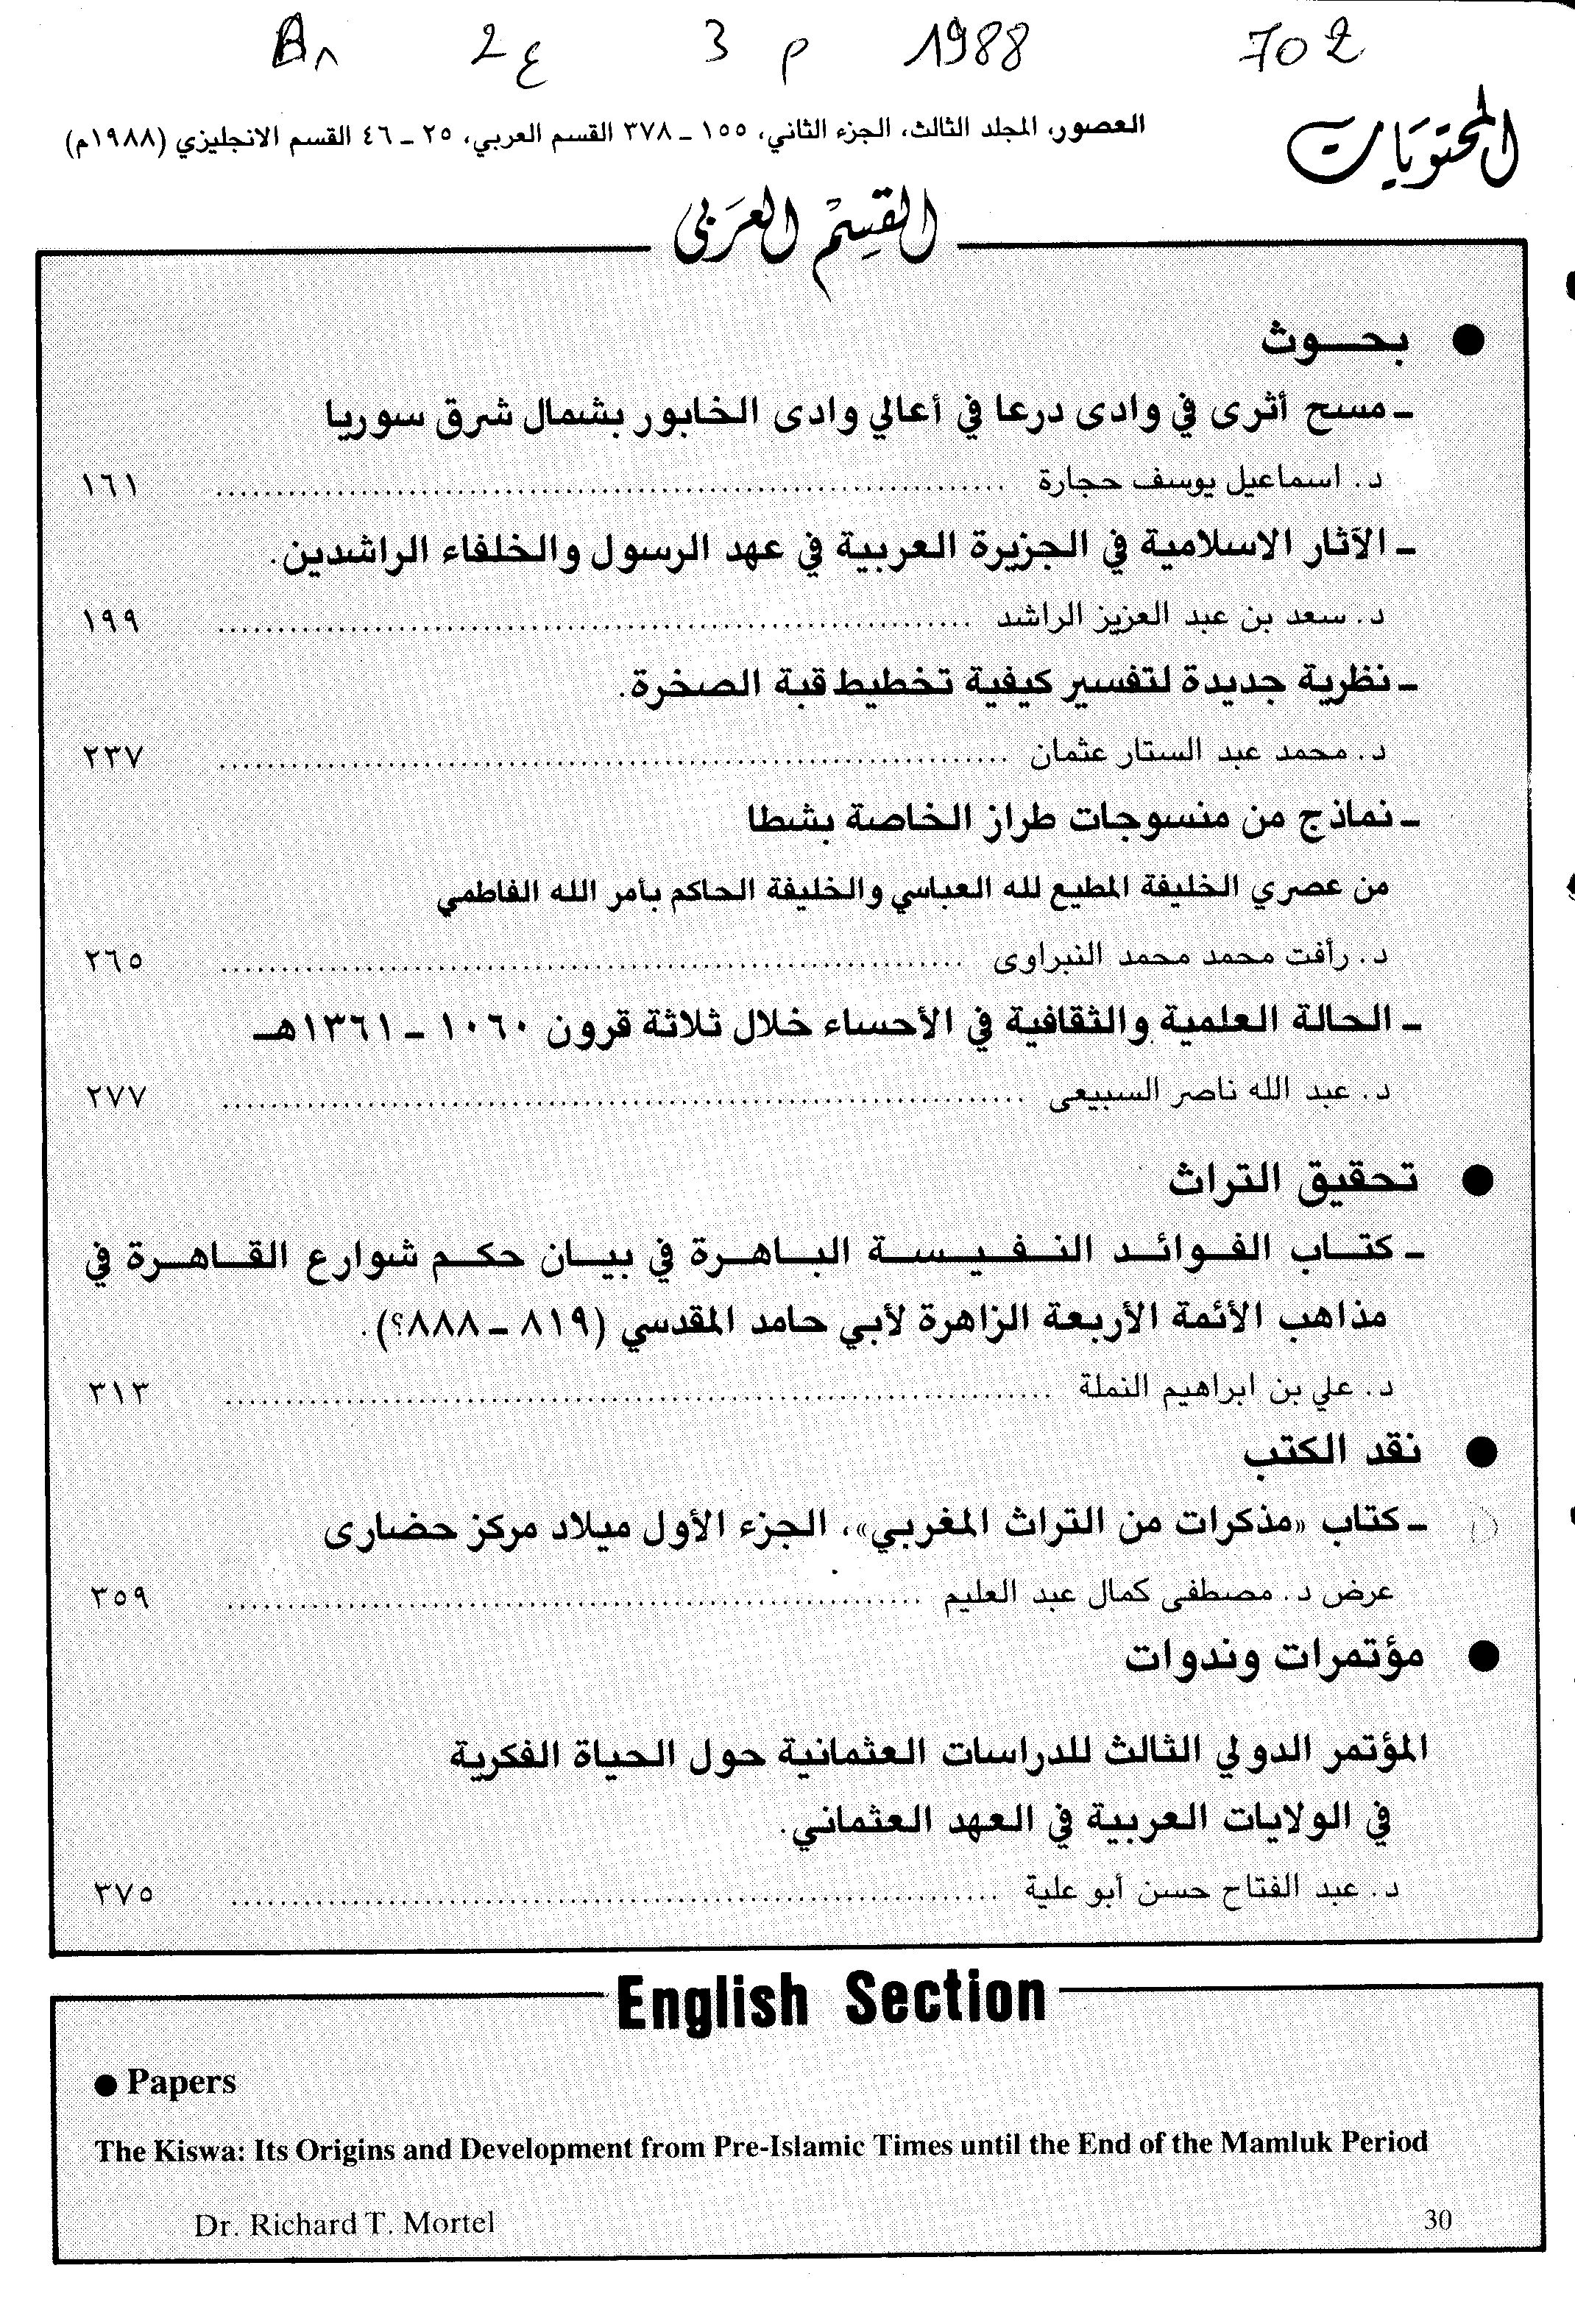 702 1988 م 3 ع 2
المحتويات
العصور، المجلد الثالث، الجزء الثاني، ١٥٥ ـ ٣٧٨ القسم العربي، ٢٥ ـ ٤٦ القسم الانجليزي (١٩٨٨م)
القسم العربي
● بحوث
ـ مسح أثرى في وادى درعا في أعالي وادى الخابور بشمال شرق سوريا
د. اسماعيل يوسف حجارة ........ ١٦١
ـ الآثار الاسلامية في الجزيرة العربية في عهد الرسول والخلفاء الراشدين.
د. سعد بن عبد العزيز الراشد ........ ١٩٩
ـ نظرية جديدة لتفسير كيفية تخطيط قبة الصخرة.
د. محمد عبد الستار عثمان ........ ٢٣٧
ـ نماذج من منسوجات طراز الخاصة بشطا
من عصري الخليفة المطيع لله العباسي والخليفة الحاكم بأمر الله الفاطمي
د. رأفت محمد محمد النبراوى ........ ٢٦٥
ـ الحالة العلمية والثقافية في الأحساء خلال ثلاثة قرون ١٠٦٠ ـ ١٣٦١هـ
د. عبد الله ناصر السبيعى ........ ٢٧٧
● تحقيق التراث
ـ كتاب الفوائد النفيسة الباهرة في بيان حكم شوارع القاهرة في
مذاهب الأئمة الأربعة الزاهرة لأبي حامد المقدسي (٨١٩ ـ ٨٨٨؟).
د. علي بن ابراهيم النملة ........ ٣١٣
● نقد الكتب
ـ كتاب «مذكرات من التراث المغربي»، الجزء الأول ميلاد مركز حضارى
عرض د. مصطفى كمال عبد العليم ........ ٣٥٩
● مؤتمرات وندوات
المؤتمر الدولي الثالث للدراسات العثمانية حول الحياة الفكرية
في الولايات العربية في العهد العثماني.
د. عبد الفتاح حسن أبو علية ........ ٣٧٥
English Section
● Papers
The Kiswa: Its Origins and Development from Pre-Islamic Times until the End of the Mamluk Period
Dr. Richard T. Mortel 30